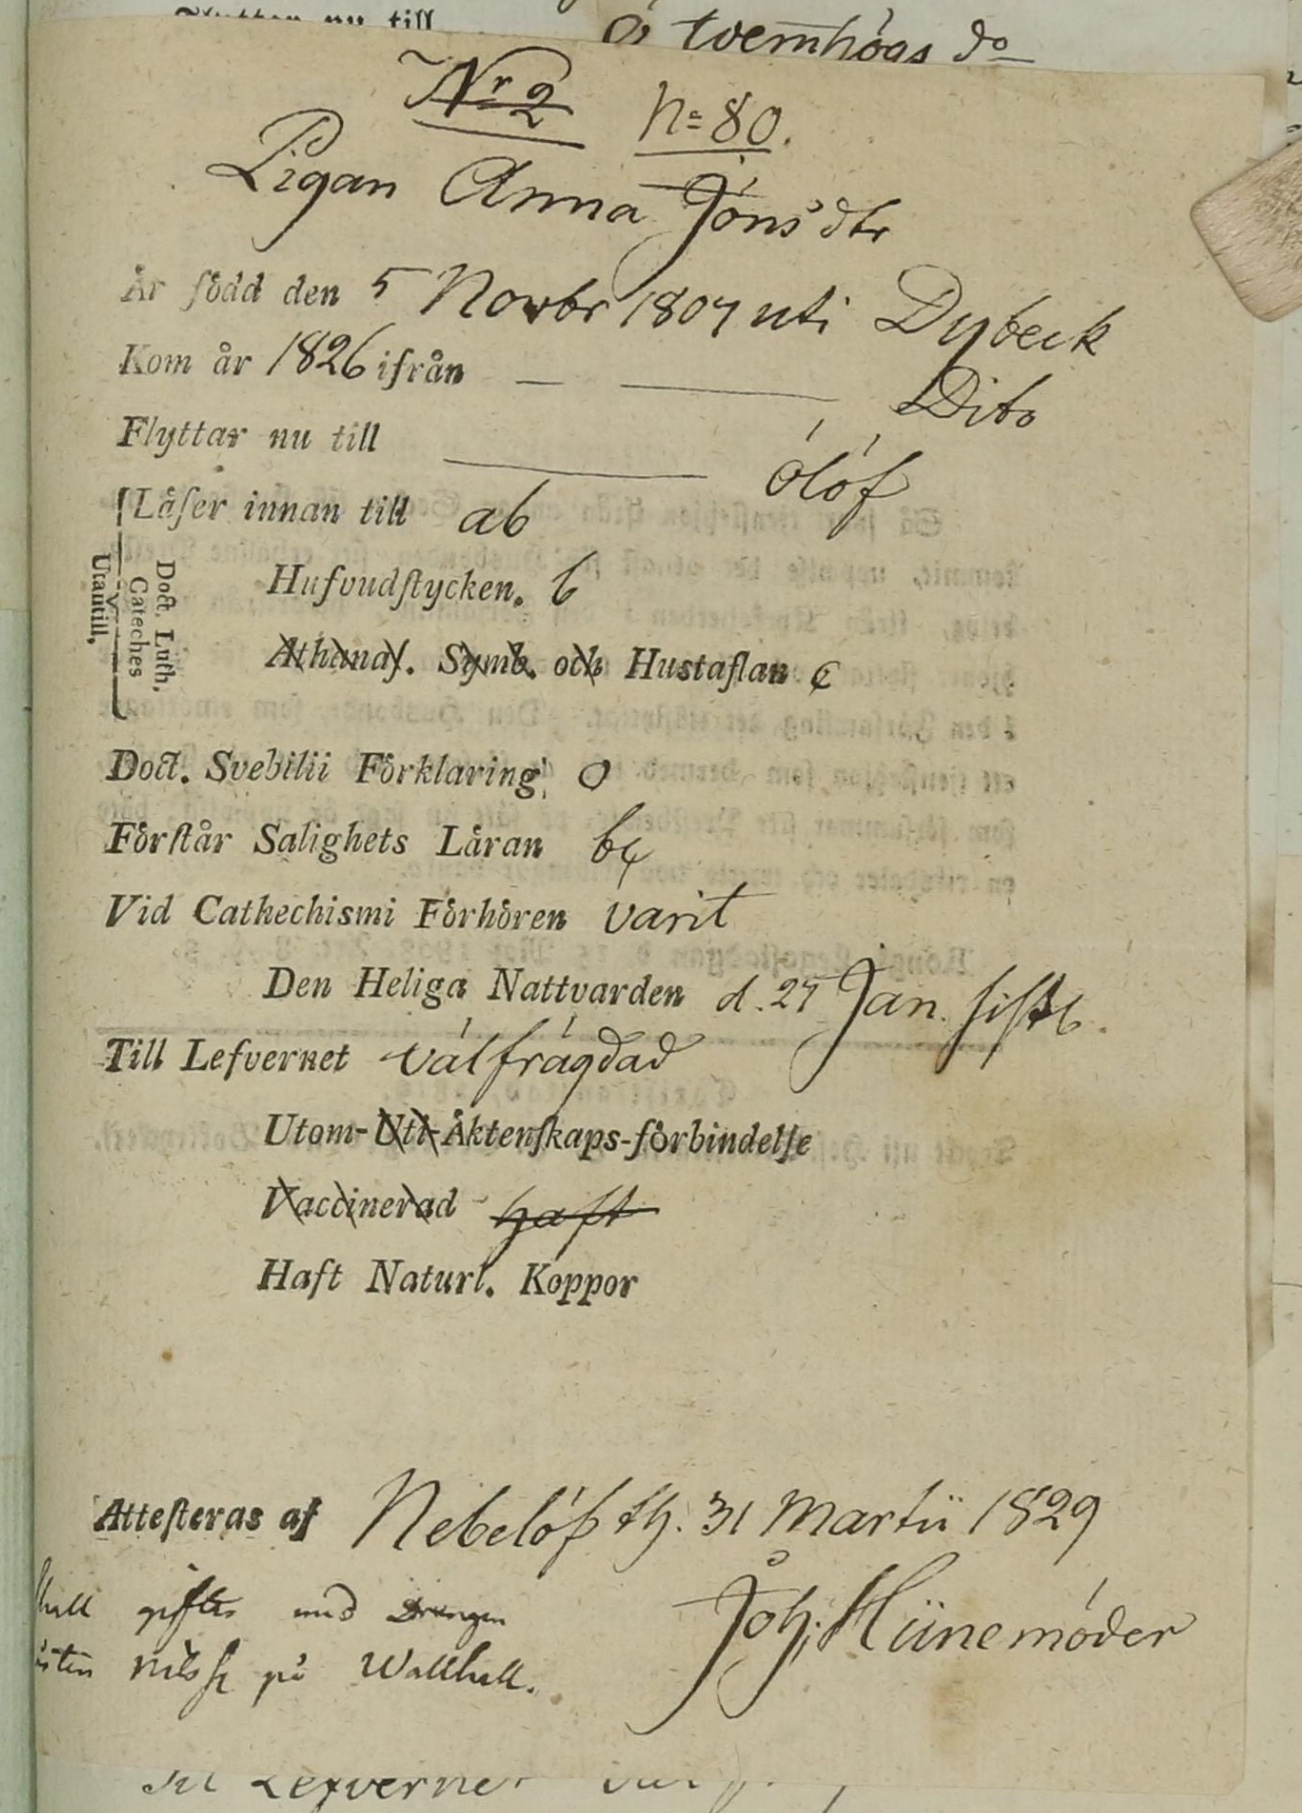 Ö, Tvemhögs do
Nr 2 No 80.
Pigan Anna Jöns dtr
Är född den 5 Novbr 1807 uti Dybeck
Kom år 1826 ifrån — — Dito
Flyttar nu till — Ölöf
Läſer innan till ab
Doct. Luth. Cateches Utantill,
Hufvudſtycken. b
Athanaſ. Symb. och Hustaflan c
Doct. Svebilii Förklaring o
Förſtår Salighets Läran bc
Vid Cathechismi Förhören varit
Den Heliga Nattvarden d. 25 Jan. ſiſtl.
Till Lefvernet välfrägdad
Utom-Uti-Äktenſkaps-förbindelſe
Vaccinerad haft
Haft Naturl. Koppor
Atteſteras af Nebelöf th. 31 Martii 1829
Joh. Hünemöder
skall giftes med Drängen
Nilsſ på Wallhall.
Till Lefvernet